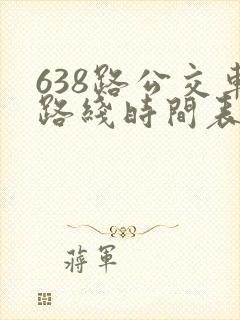 638路公交車
路綫時間表
蔣軍